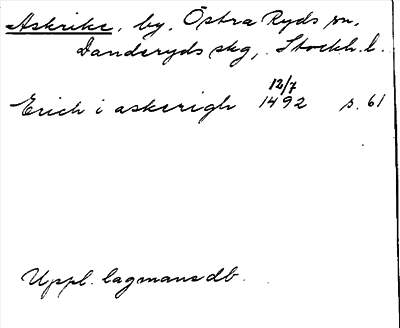 Askrike, by, Östra Ryds sn,
Danderyds skg, Stockh. l.
12/7
Erich i askerigh 1492 s. 61
Uppl. lagmansdb.